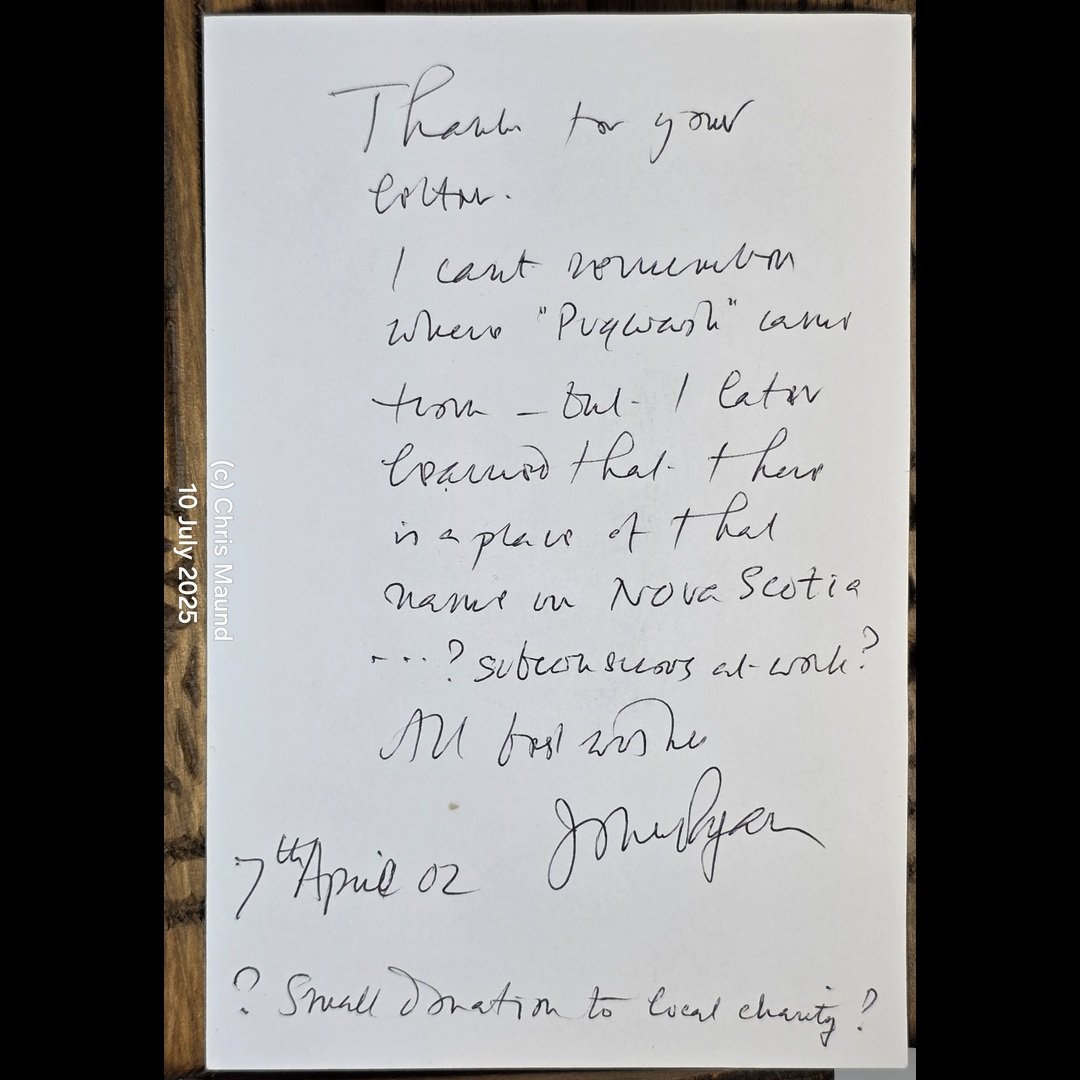 Thanks for your
letter.
I can't remember
where "Pugwash" came
from – but I later
learned that there
is a place of that
name in Nova Scotia
...? subconscious at work?
All best wishes
John Ryan
7th April 02
? Small donation to local charity?
(c) Chris Maund
10 July 2025